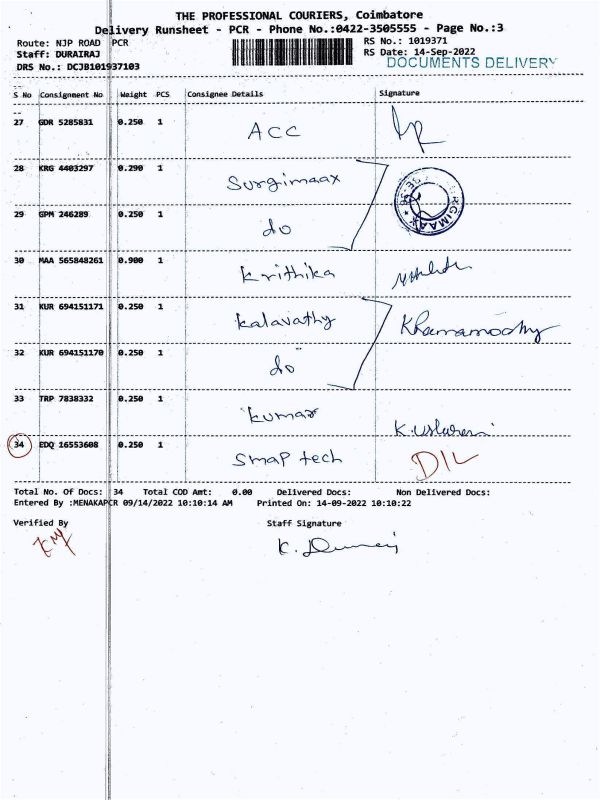 THE PROFESSIONAL COURIERS, Coimbatore
Delivery Runsheet - PCR - Phone No.:0422-3505555 - Page No.:3
Route: NJP ROAD PCR RS No.: 1019371
Staff: DURAIRAJ RS Date: 14-Sep-2022
DRS No.: DCJB101937103 DOCUMENTS DELIVERY
S No Consignment No Weight PCS Consignee Details Signature
27 GDR 5285831 0.250 1 ACC
28 KRG 4403297 0.290 1 Surgimaax
29 GPM 246289 0.250 1 do
30 MAA 565848261 0.900 1 Krithika
31 KUR 694151171 0.250 1 Kalavathy
32 KUR 694151170 0.250 1 do
33 TRP 7838332 0.250 1 Kumar
34 EDQ 16553608 0.250 1 Smap tech DIL
Total No. Of Docs: 34 Total COD Amt: 0.00 Delivered Docs: Non Delivered Docs:
Entered By :MENAKAPCR 09/14/2022 10:10:14 AM Printed On: 14-09-2022 10:10:22
Verified By Staff Signature